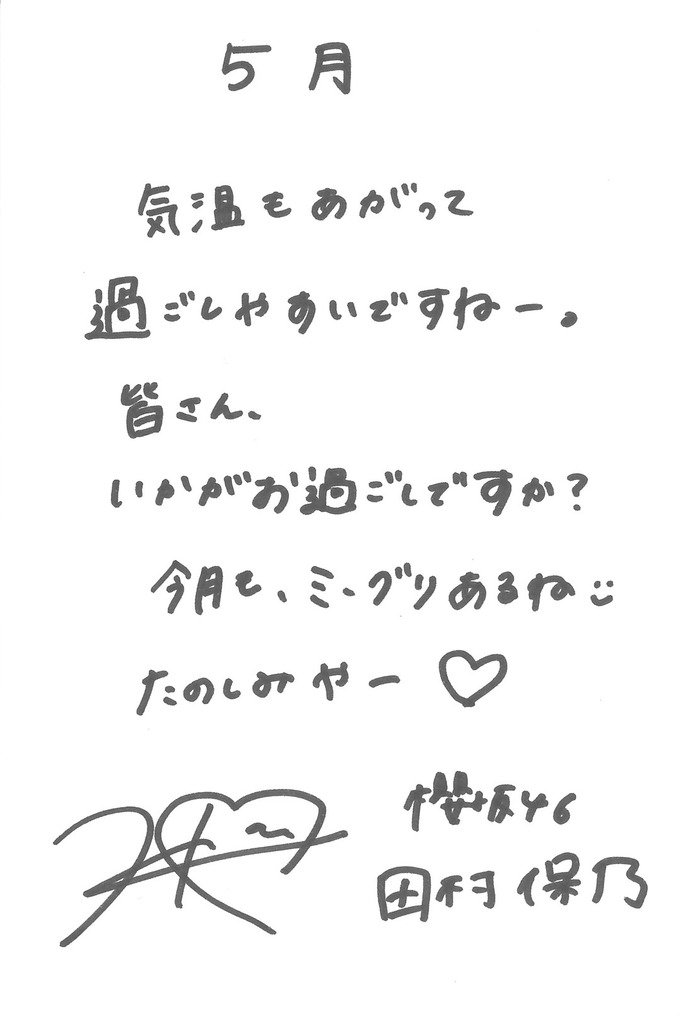 5月
気温もあがって
過ごしやすいですねー。
皆さん、
いかがお過ごしですか?
今月も、ミーグリあるね
たのしみやー♡
櫻坂46
田村保乃